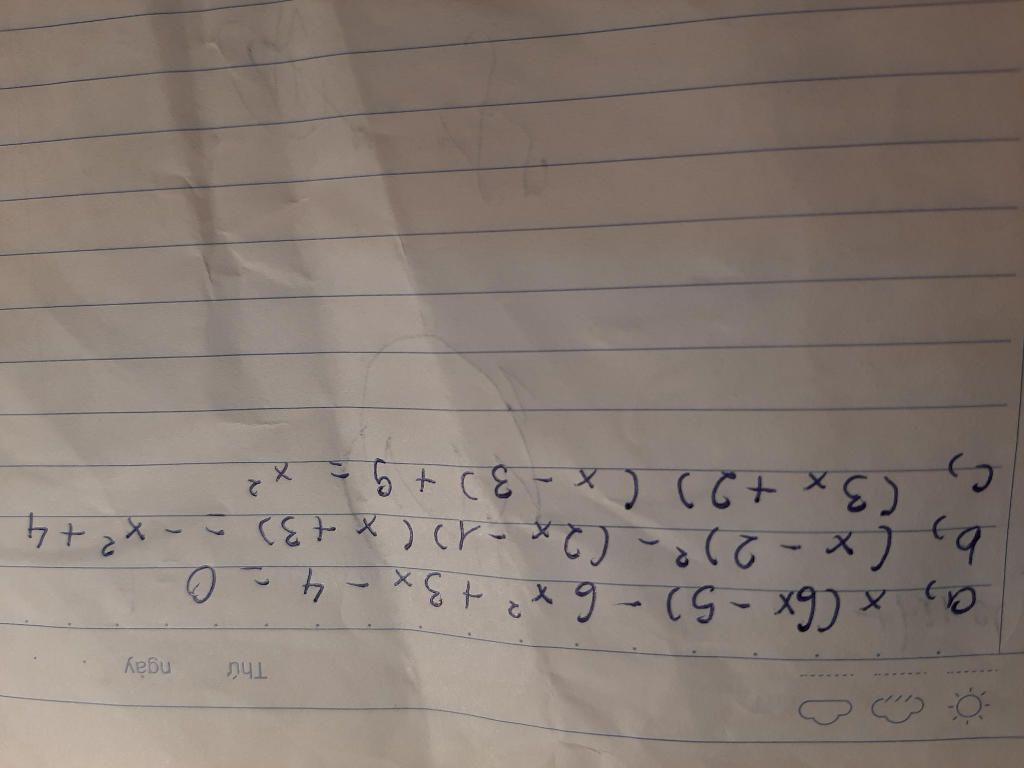 Thứ ngày
a, x(6x - 5) - 6x² + 3x - 4 = 0
b, (x - 2)² - (2x - 1)(x + 3) = - x² + 4
c, (3x + 2)(x - 3) + 9 = x²